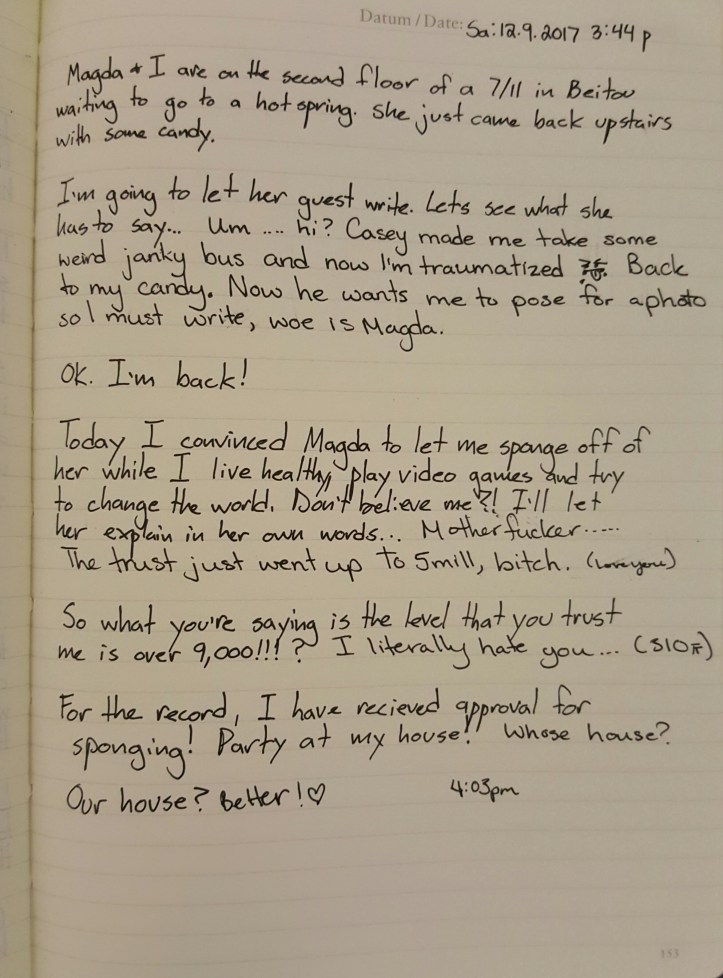 Datum / Date: Sa: 12.9.2017 3:44 p
Magda & I are on the second floor of a 7/11 in Beitou
waiting to go to a hot spring. She just came back upstairs
with some candy.
I'm going to let her guest write. Lets see what she
has to say... Um .... hi? Casey made me take some
weird janky bus and now I'm traumatized Back
to my candy. Now he wants me to pose for a photo
so I must write, woe is Magda.
OK. I'm back!
Today I convinced Magda to let me sponge off of
her while I live healthy, play video games and try
to change the world. Don't believe me?! I'll let
her explain in her own words... Motherfucker.....
The trust just went up to 5mill, bitch. (love you)
So what you're saying is the level that you trust
me is over 9,000!!! ? I literally hate you...
For the record, I have recieved approval for
sponging! Party at my house!! Whose house?
Our house? Better!♡ 4:03pm
153